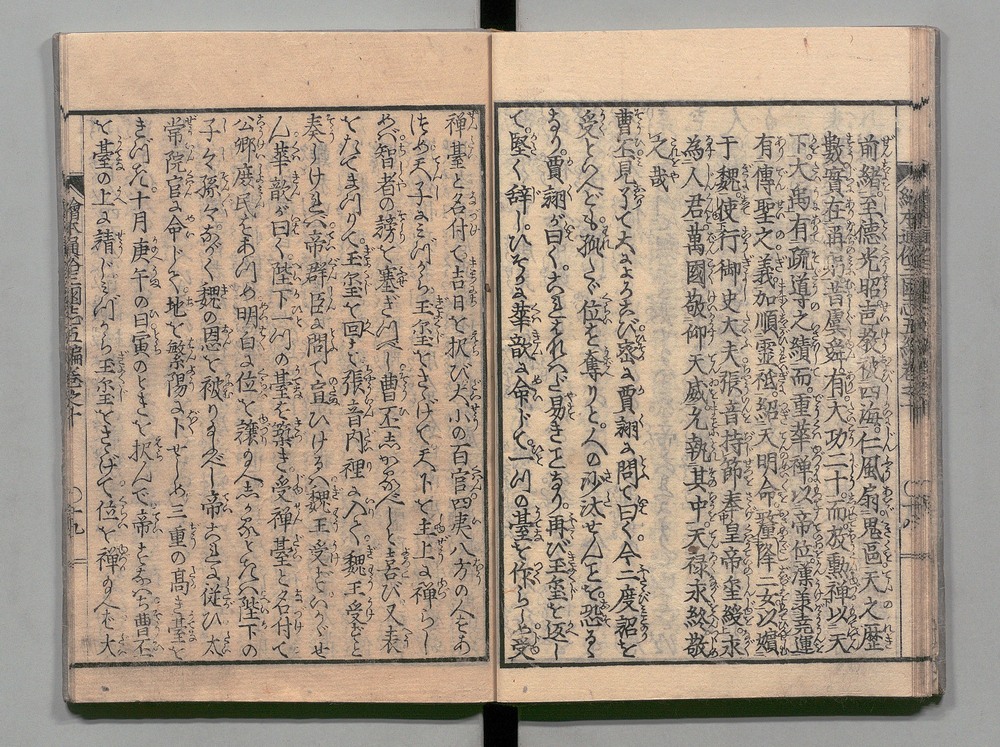 前緒至德光昭音教被四海仁風扇鬼區天之歷
數實在爾躬昔虞舜有大功二十而放勳禪以天
下大禹有疏導之績而重華禪以帝位漢業堯運
有傳聖之義加順靈祗紹天明命釐降二女以嬪
于魏使行御史大夫張音持節奉皇帝璽綬永
為人君萬國敬仰天威允執其中天祿永終敬
之哉
曹丕見了て大によろこび密に賈詡に問て曰く今二度詔を
受といへども孤たゞ位を奪りと人の沙汰せんことを恐るゝ
なり賈詡が曰くこれきはめて易きことなり再び玉璽を返し
て堅く辞しひそかに華歆に命じて一つの臺を作らしめ受
禪臺と名付て吉日を択び大小の百官四夷八方の人をあ
つめ天子みづから玉璽をさゝげて天下を主上に禪らし
めバ智者の謗を塞ぎつべし曹丕しかるべしと喜び又表
をたてまつりて玉璽を回す張音内裡に入て魏王受ずと
奏しけれバ帝群臣に問て宣ひけるハ魏王受ずいかゞせ
ん華歆が曰く陛下一つの臺を築き受禪臺と名付て
公卿庶民をあつめ明白に位を譲り玉ハゞ陛下の
子々孫々ながく魏の恩を被り玉ふべし帝これに従ひ太
常院官に命じて地を繁陽に下せしめ三重の髙き臺を
きづき十月庚午の日寅のときを択んで帝すなハち曹丕
を臺の上に請じみづから玉璽をさゝげて位を禪り玉ふ大
繪本通俗三國志五編巻之十
十九